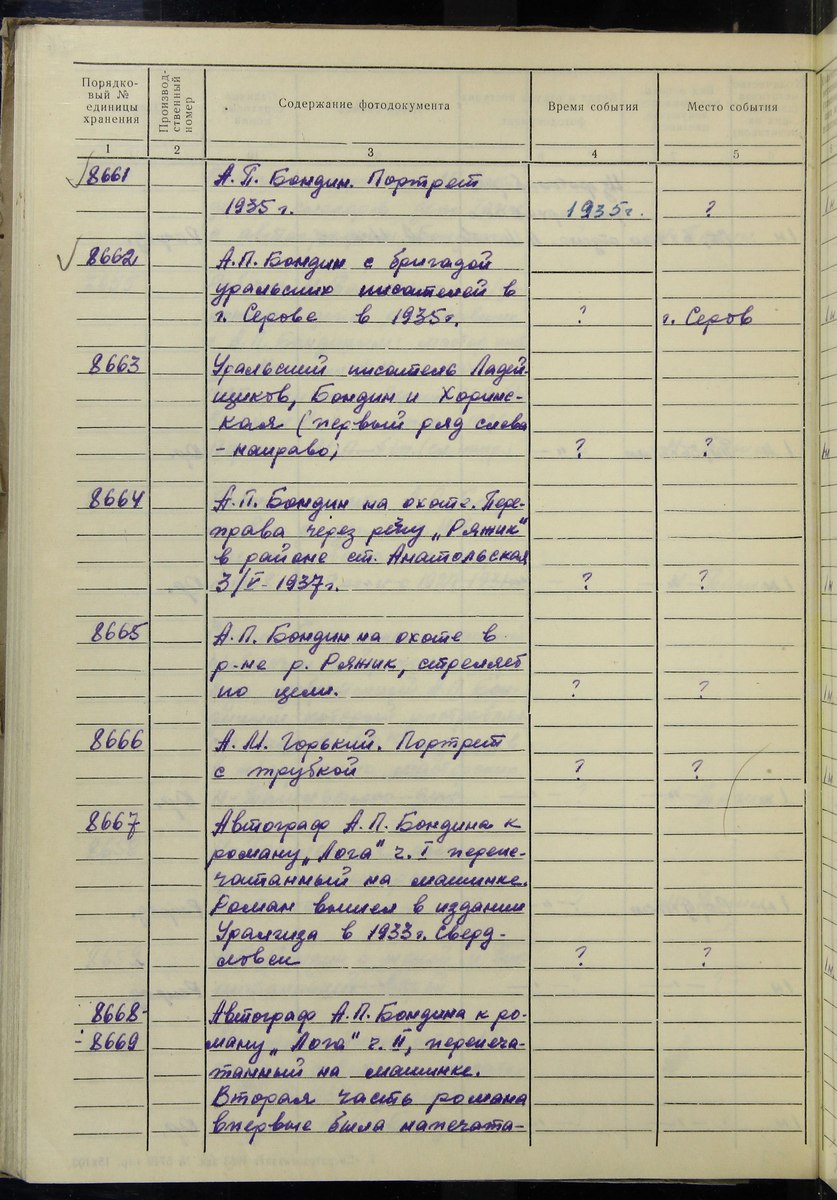 Порядко-
вый №
единицы
хранения
Производ-
ственный
номер
Содержание фотодокумента
Время события
Место события
1 2 3 4 5
8661 А. П. Бондин. Портрет
1935 г. 1935 г. ?
8662 А.П. Бондин с бригадой
уральских писателей в
г. Серове в 1935 г. ? г. Серов
8663 Уральский писатель Ладей-
щиков, Бондин и Хоринс-
кая (первый ряд слева
- направо) ? ?
8664 А.П. Бондин на охоте. Пере-
права через речку „Ряжик"
в районе ст. Анатольская
3/V-1937 г. ? ?
8665 А.П. Бондин на охоте в
р-не р. Ряжик, стреляет
по цели. ? ?
8666 А. М. Горький. Портрет
с трубкой ? ?
8667 Автограф А.П. Бондина к
роману „Лога" ч. I перепе-
чатанный на машинке.
Роман вышел в издании
Уралгиза в 1933 г. Сверд-
ловск ? ?
8668- Автограф А.П. Бондина к ро-
- 8669 ману „Лога" ч. II, перепеча-
танный на машинке.
Вторая часть романа
впервые была напечата-